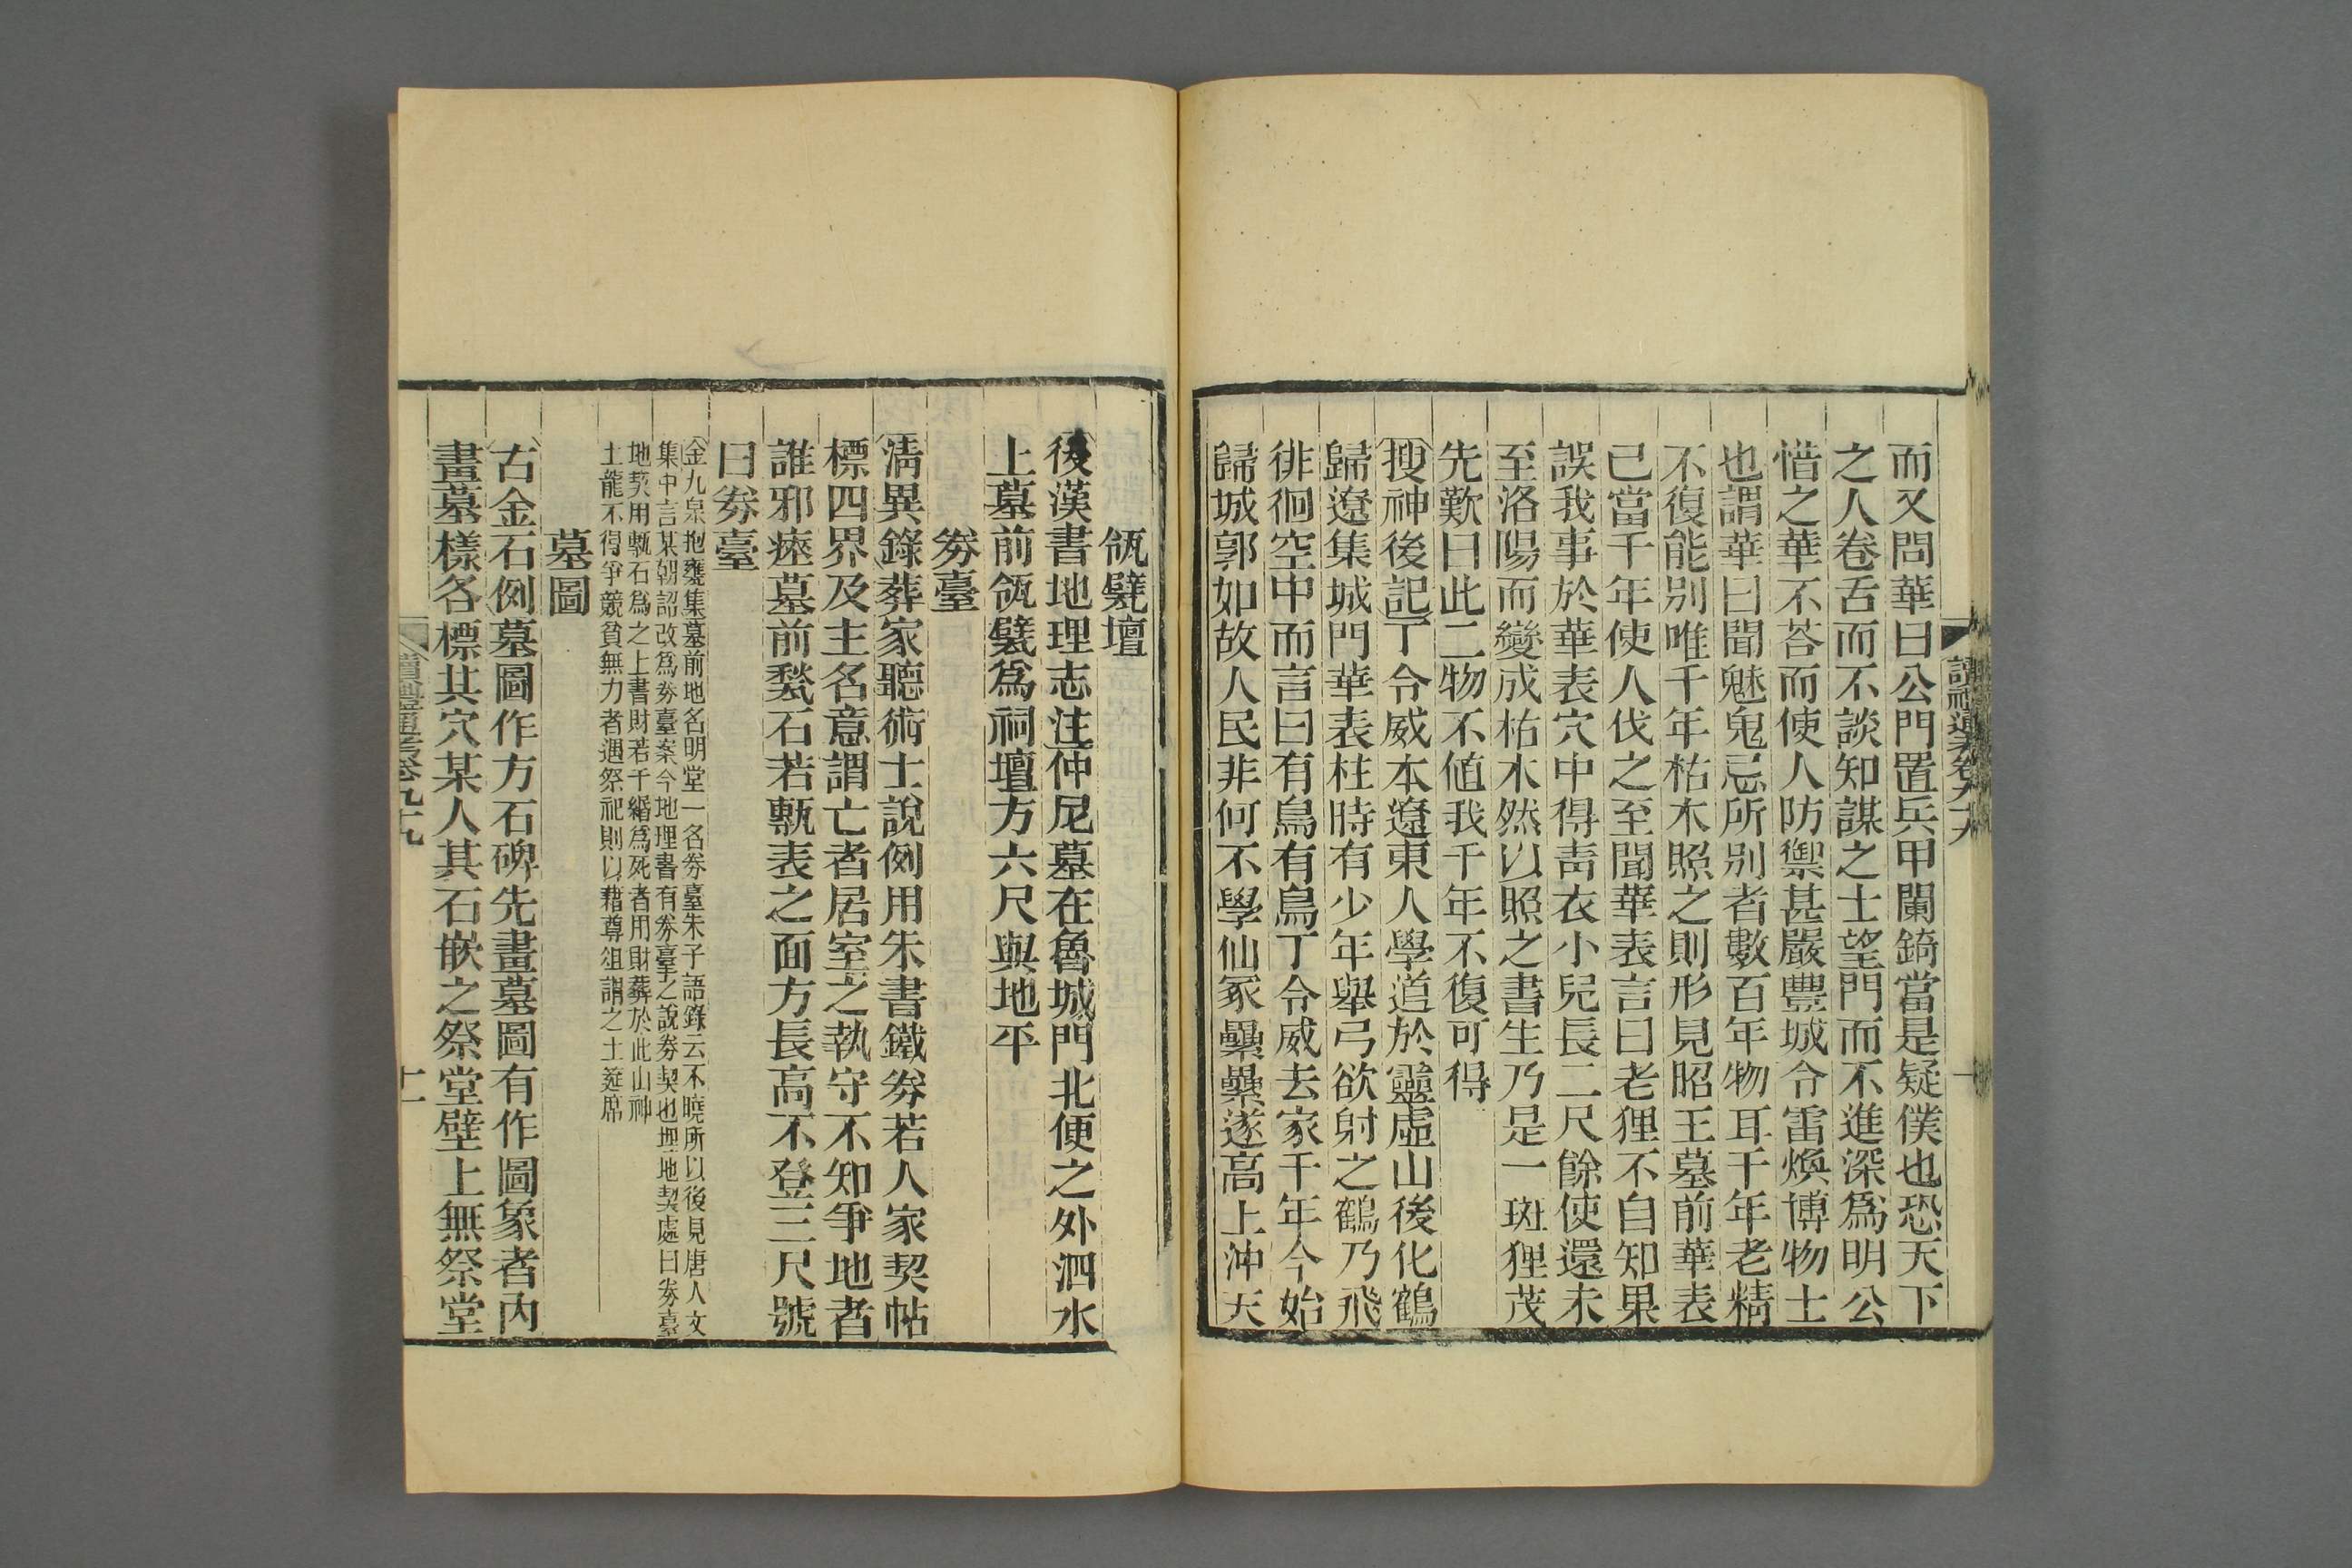 而又問華曰公門置兵甲闌錡當是疑僕也恐天下
之人卷舌而不談知謀之士望門而不進深爲明公
惜之華不荅而使人防禦甚嚴豐城令雷煥博物士
也謂華曰聞魅鬼忌所別者數百年物耳千年老精
不復能別唯千年枯木照之則形見昭王墓前華表
已當千年使人伐之至聞華表言曰老狸不自知果
誤我事於華表穴中得青衣小兒長二尺餘使還未
至洛陽而變成枯木然以照之書生乃是一斑狸茂
先歎曰此二物不値我千年不復可得
搜神後記丁令威本遼東人學道於靈虛山後化鶴
歸遼集城門華表柱時有少年舉弓欲射之鶴乃飛
徘徊空中而言曰有鳥有鳥丁令威去家千年今始
歸城郭如故人民非何不學仙冢纍纍遂高上沖天
瓴甓壇
後漢書地理志注仲尼墓在魯城門北便之外泗水
上墓前瓴甓爲祠壇方六尺與地平
劵臺
淸異錄葬家聽術士說例用朱書鐵劵若人家契帖
標四界及主名意謂亡者居室之執守不知爭地者
誰邪瘞墓前甃石若甎表之面方長高不登三尺號
曰劵臺
金九臯抱甕集墓前地名明堂一名劵臺朱子語錄云不曉所以後見唐人文
集中言某朝詔改爲劵臺案今地理書有劵臺之說劵契也埋地契處曰劵臺
地契用甎石爲之上書財若千緡爲死者用財葬於此山神
土龍不得爭競貧無力者遇祭祀則以藉尊俎謂之土筵席
墓圖
古金石例墓圖作方石碑先畫墓圖有作圖象者內
畫墓樣各標其穴某人其石嵌之祭堂壁上無祭堂
讀禮通考卷九十九
十一